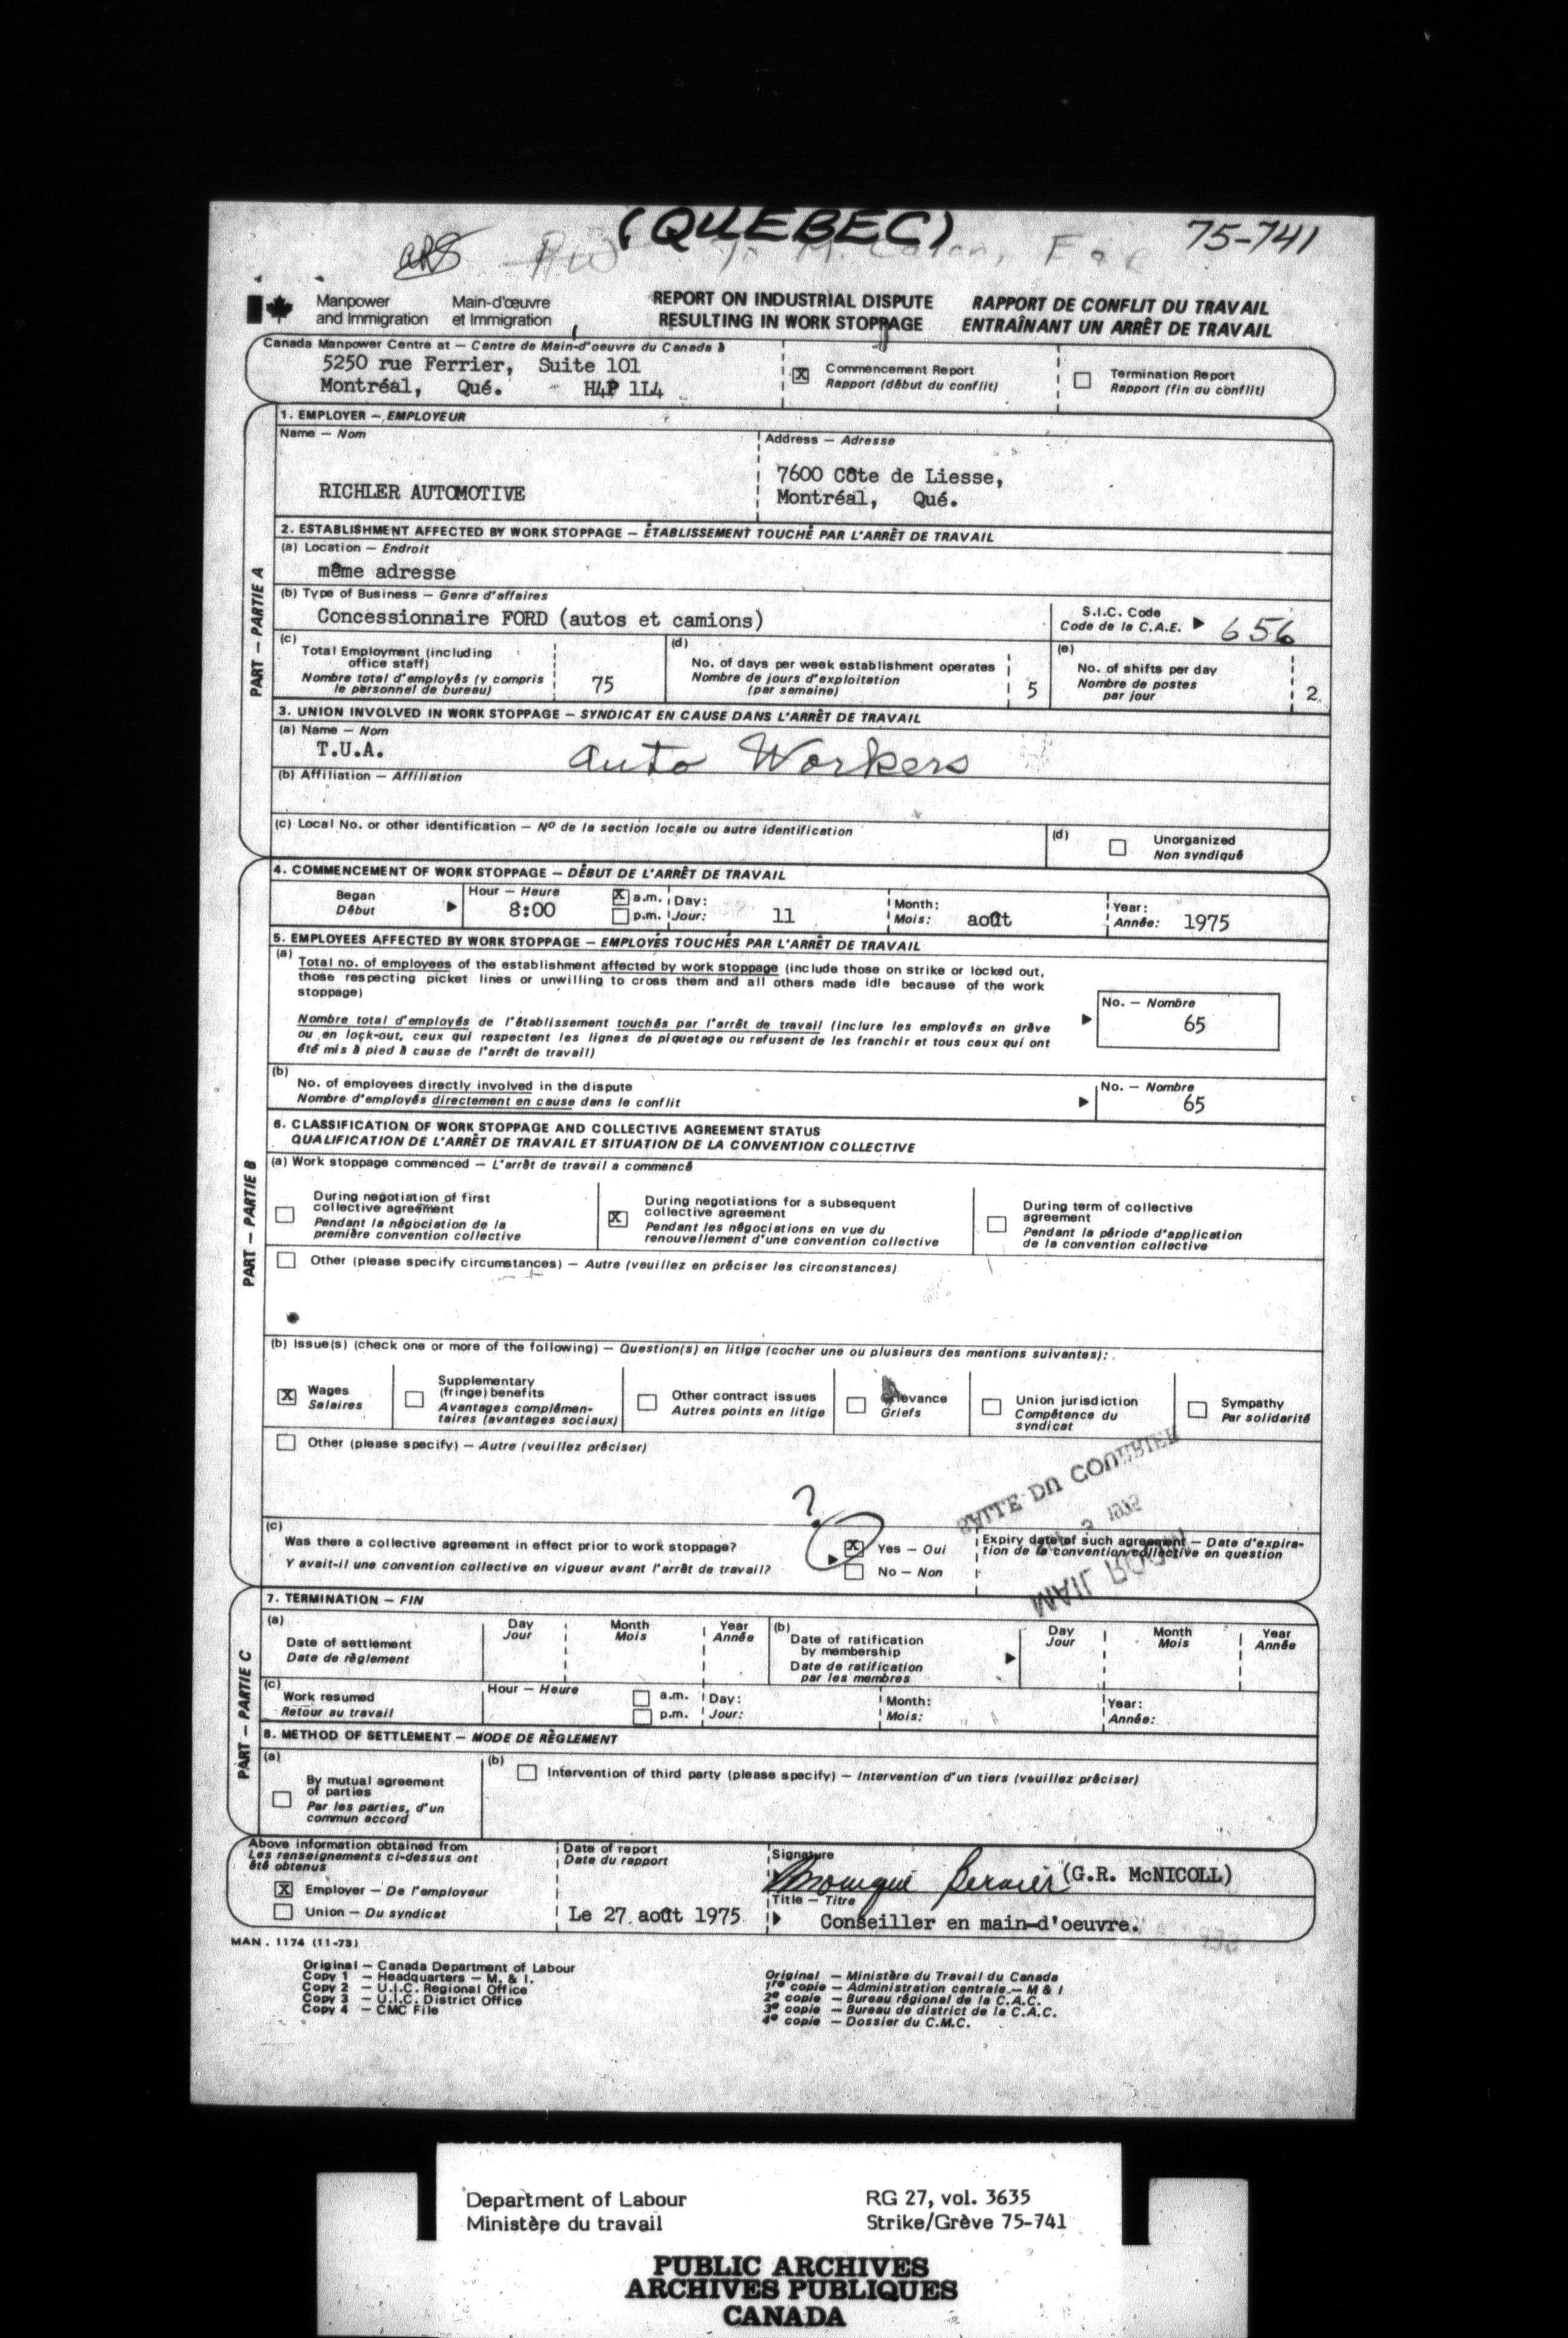 (QUEBEC)
75-741
Manpower and Immigration
Main-d'œuvre et Immigration
REPORT ON INDUSTRIAL DISPUTE
RESULTING IN WORK STOPPAGE
RAPPORT DE CONFLIT DU TRAVAIL
ENTRAÎNANT UN ARRÊT DE TRAVAIL
Canada Manpower Centre at — Centre de Main-d'oeuvre du Canada à
5250 rue Ferrier, Suite 101
Montréal, Qué. H4P 1L4
X Commencement Report
Rapport (début du conflit)
Termination Report
Rapport (fin au conflit)
PART — PARTIE A
1. EMPLOYER — EMPLOYEUR
Name — Nom
RICHLER AUTOMOTIVE
Address — Adresse
7600 Côte de Liesse,
Montréal, Qué.
2. ESTABLISHMENT AFFECTED BY WORK STOPPAGE — ÉTABLISSEMENT TOUCHÉ PAR L'ARRÊT DE TRAVAIL
(a) Location — Endroit
même adresse
(b) Type of Business — Genre d'affaires
Concessionnaire FORD (autos et camions)
S.I.C. Code
Code de la C.A.E.
656
(c) Total Employment (including
office staff)
Nombre total d'employés (y compris
le personnel de bureau)
75
(d) No. of days per week establishment operates
Nombre de jours d'exploitation
(par semaine)
5
(e) No. of shifts per day
Nombre de postes
par jour
2
3. UNION INVOLVED IN WORK STOPPAGE — SYNDICAT EN CAUSE DANS L'ARRÊT DE TRAVAIL
(a) Name — Nom
T.U.A.
Auto Workers
(b) Affiliation — Affiliation
(c) Local No. or other identification — Nº de la section locale ou autre identification
(d) Unorganized
Non syndiqué
PART — PARTIE B
4. COMMENCEMENT OF WORK STOPPAGE — DÉBUT DE L'ARRÊT DE TRAVAIL
Began
Début
Hour — Heure
8:00
X a.m.
p.m.
Day:
Jour: 11
Month:
Mois: août
Year:
Année: 1975
5. EMPLOYEES AFFECTED BY WORK STOPPAGE — EMPLOYÉS TOUCHÉS PAR L'ARRÊT DE TRAVAIL
(a) Total no. of employees of the establishment affected by work stoppage (include those on strike or locked out,
those respecting picket lines or unwilling to cross them and all others made idle because of the work
stoppage)
Nombre total d'employés de l'établissement touchés par l'arrêt de travail (inclure les employés en grève
ou en lock-out, ceux qui respectent les lignes de piquetage ou refusent de les franchir et tous ceux qui ont
été mis à pied à cause de l'arrêt de travail)
No. — Nombre
65
(b) No. of employees directly involved in the dispute
Nombre d'employés directement en cause dans le conflit
No. — Nombre
65
6. CLASSIFICATION OF WORK STOPPAGE AND COLLECTIVE AGREEMENT STATUS
QUALIFICATION DE L'ARRÊT DE TRAVAIL ET SITUATION DE LA CONVENTION COLLECTIVE
(a) Work stoppage commenced — L'arrêt de travail a commencé
During negotiation of first
collective agreement
Pendant la négociation de la
première convention collective
X During negotiations for a subsequent
collective agreement
Pendant les négociations en vue du
renouvellement d'une convention collective
During term of collective
agreement
Pendant la période d'application
de la convention collective
Other (please specify circumstances) — Autre (veuillez en préciser les circonstances)
(b) Issue(s) (check one or more of the following) — Question(s) en litige (cocher une ou plusieurs des mentions suivantes):
X Wages
Salaires
Supplementary
(fringe) benefits
Avantages complémen-
taires (avantages sociaux)
Other contract issues
Autres points en litige
Grievance
Griefs
Union jurisdiction
Compétence du
syndicat
Sympathy
Par solidarité
Other (please specify) — Autre (veuillez préciser)
?
(c) Was there a collective agreement in effect prior to work stoppage?
Y avait-il une convention collective en vigueur avant l'arrêt de travail?
X Yes — Oui
No — Non
Expiry date of such agreement — Date d'expira-
tion de la convention collective en question
MAIL ROOM
PART — PARTIE C
7. TERMINATION — FIN
(a) Date of settlement
Date de règlement
Day
Jour
Month
Mois
Year
Année
(b) Date of ratification
by membership
Date de ratification
par les membres
Day
Jour
Month
Mois
Year
Année
(c) Work resumed
Retour au travail
Hour — Heure
a.m.
p.m.
Day:
Jour:
Month:
Mois:
Year:
Année:
8. METHOD OF SETTLEMENT — MODE DE RÈGLEMENT
(a) By mutual agreement
of parties
Par les parties, d'un
commun accord
(b) Intervention of third party (please specify) — Intervention d'un tiers (veuillez préciser)
Above information obtained from
Les renseignements ci-dessus ont
été obtenus
X Employer — De l'employeur
Union — Du syndicat
Date of report
Date du rapport
Le 27 août 1975
Signature
Monique Bernier (G.R. McNICOLL)
Title — Titre
Conseiller en main-d'oeuvre.
MAN . 1174 (11-73)
Original — Canada Department of Labour
Copy 1 — Headquarters — M. & I.
Copy 2 — U.I.C. Regional Office
Copy 3 — U.I.C. District Office
Copy 4 — CMC File
Original — Ministère du Travail du Canada
1re copie — Administration centrale — M & I
2e copie — Bureau régional de la C.A.C.
3e copie — Bureau de district de la C.A.C.
4e copie — Dossier du C.M.C.
Department of Labour
Ministère du travail
RG 27, vol. 3635
Strike/Grève 75-741
PUBLIC ARCHIVES
ARCHIVES PUBLIQUES
CANADA